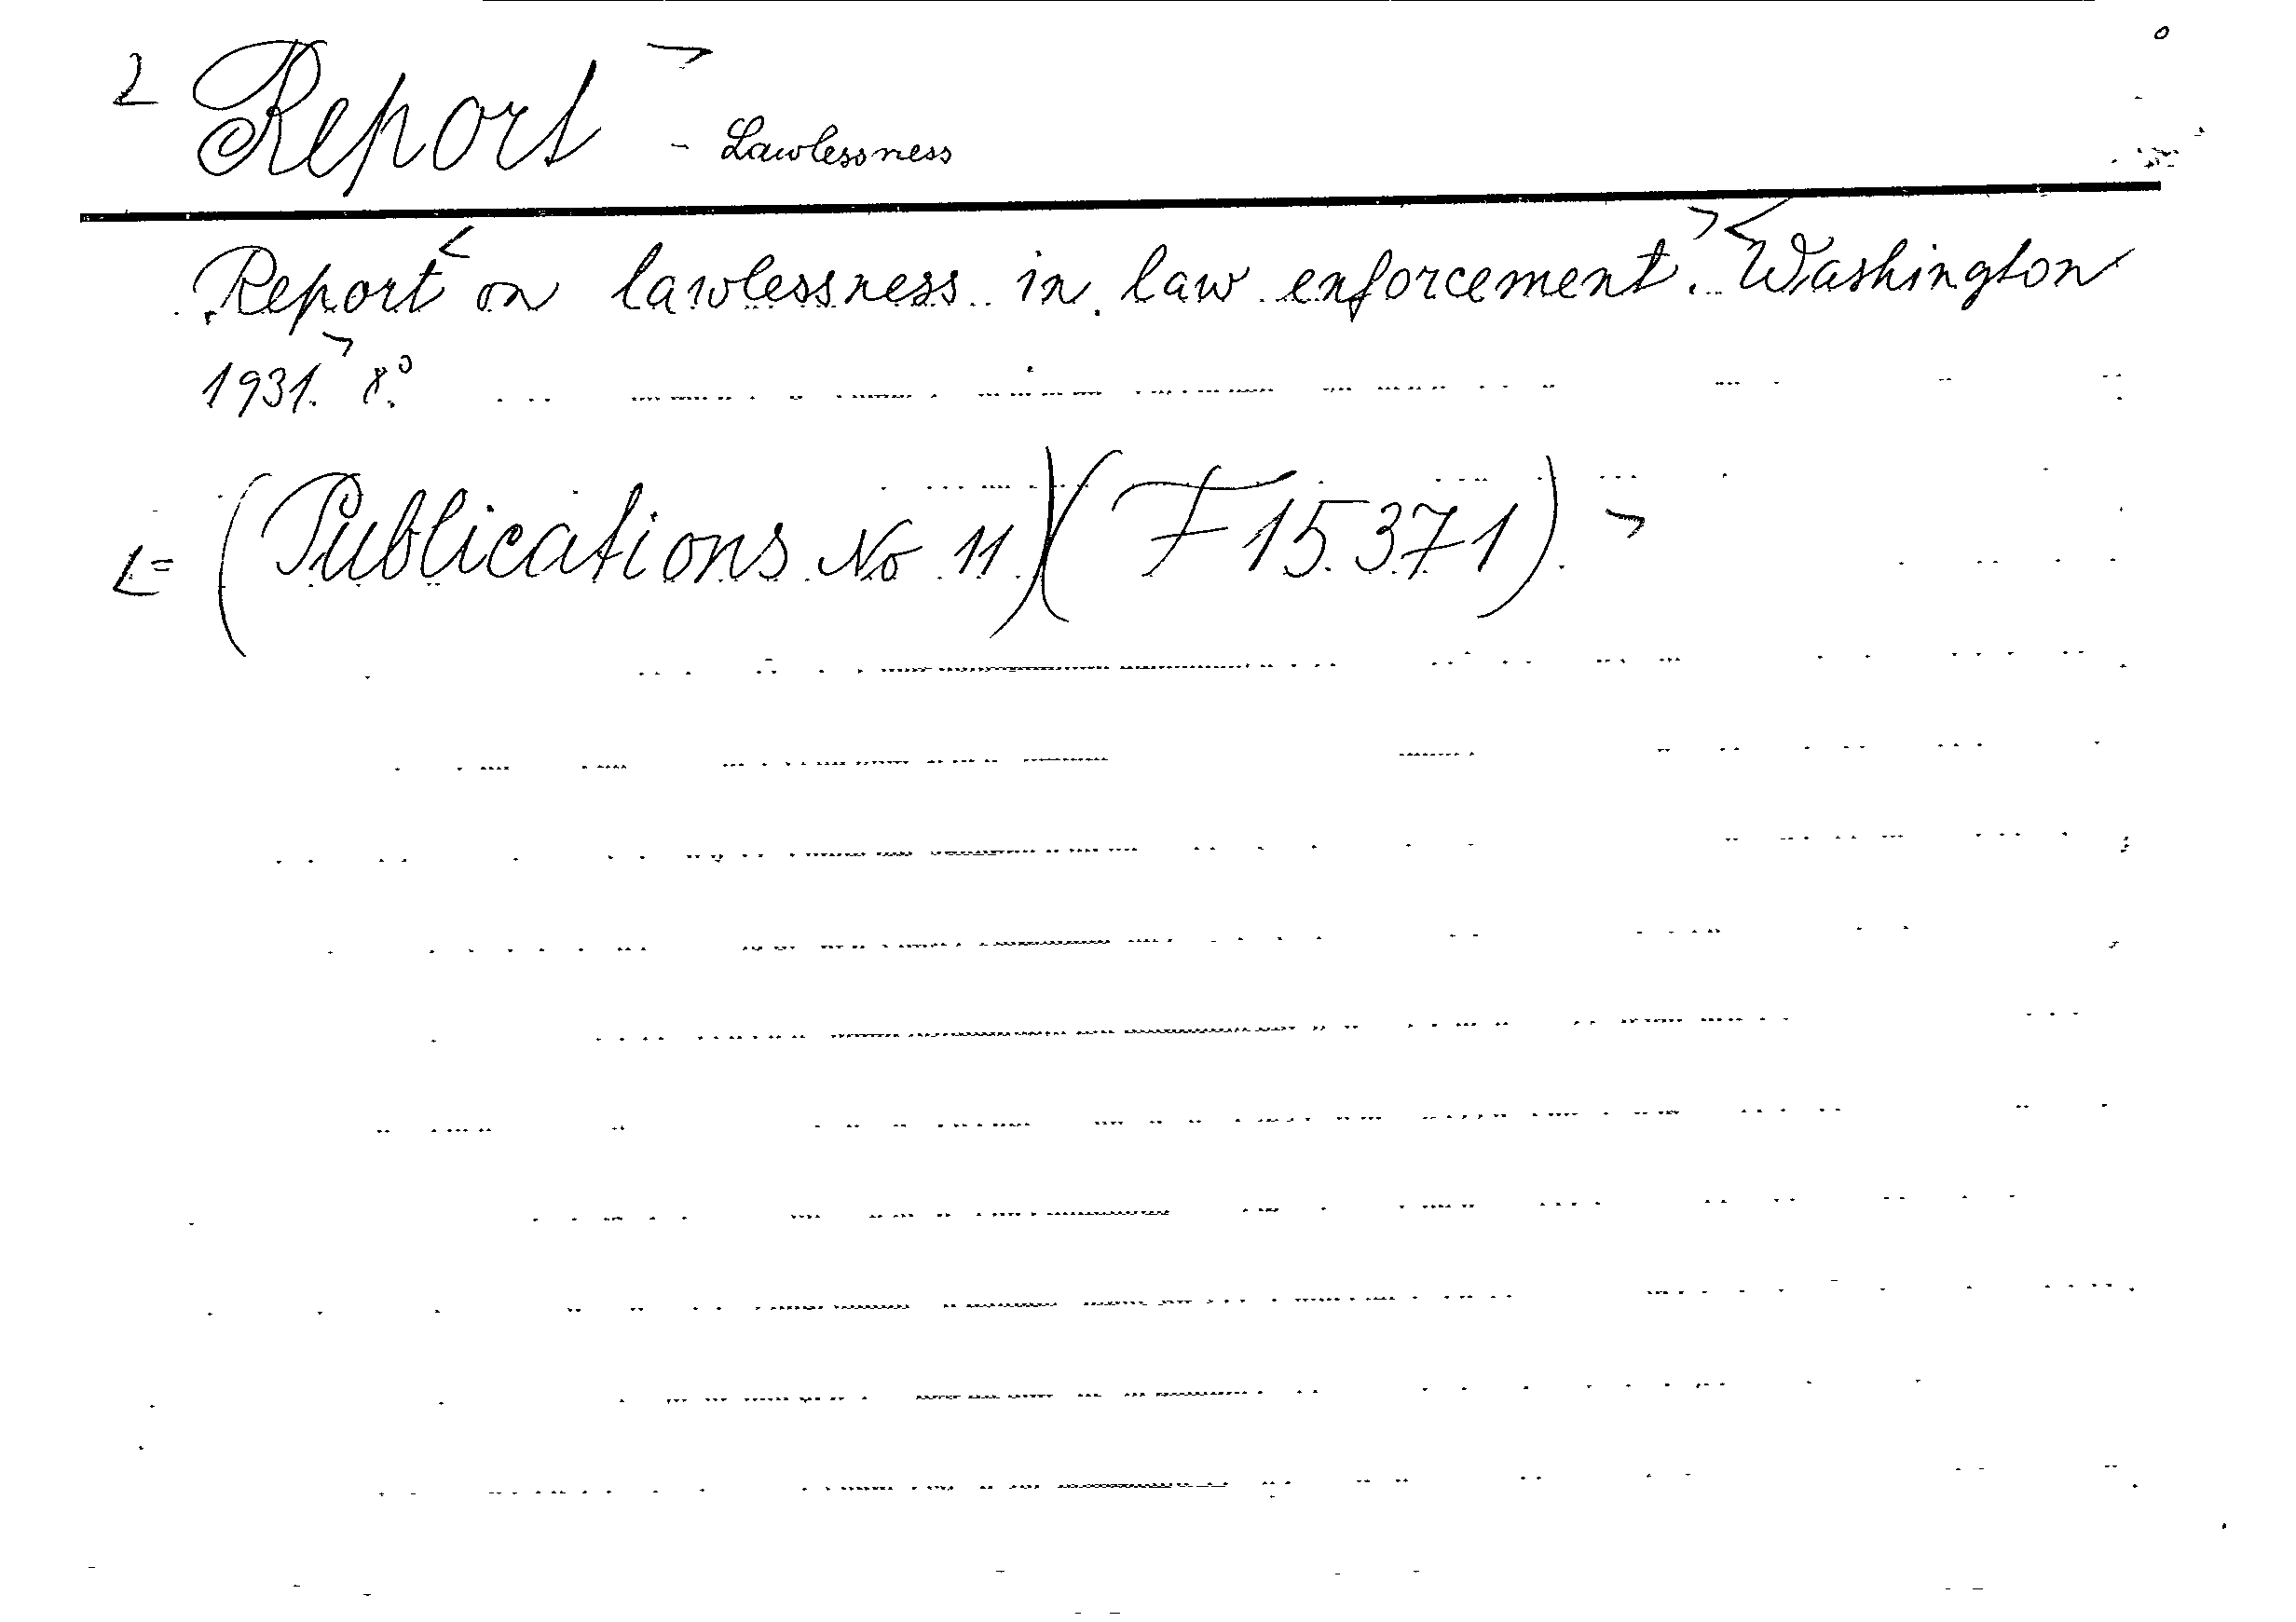 Report - Lawlessness
Report on lawlessness in law enforcement. Washington
1931. 8°.
(Publications No 11)(F 15.371)